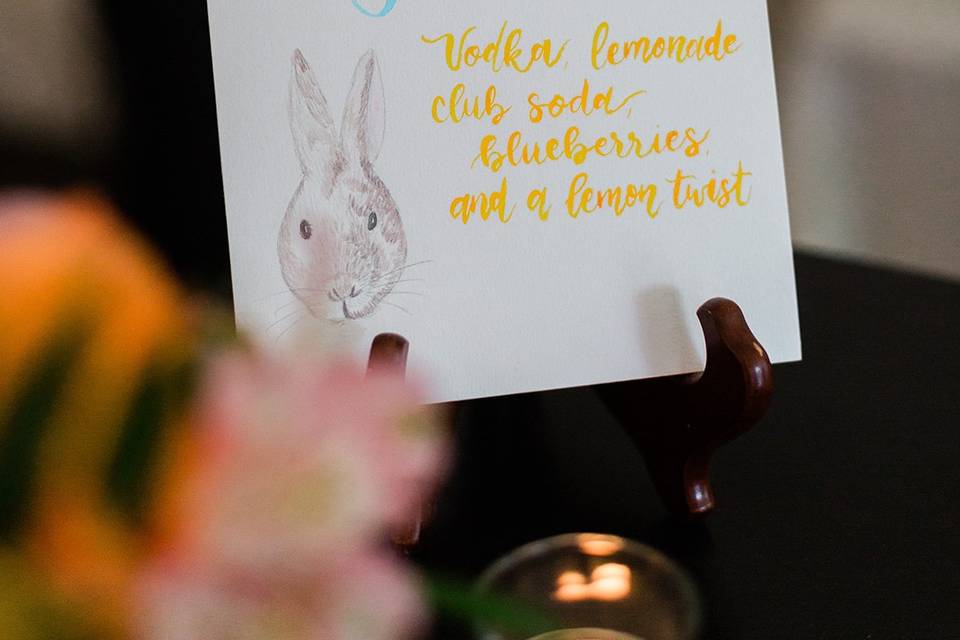 Vodka, lemonade
club soda,
blueberries,
and a lemon twist